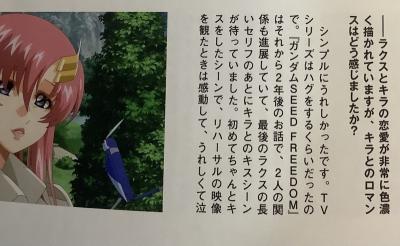 ――ラクスとキラの恋愛が非常に色濃
く描かれていますが、キラとのロマン
スはどう感じましたか？
シンプルにうれしかったです。TV
シリーズはハグをするくらいだったの
で。『ガンダムSEED FREEDOM』
はそれから2年後のお話で、2人の関
係も進展していて、最後のラクスの長
いセリフのあとにキラとのキスシーン
が待っていました。初めてちゃんとキ
スをしたシーンで、リハーサルの映像
を観たときは感動して、うれしくて泣